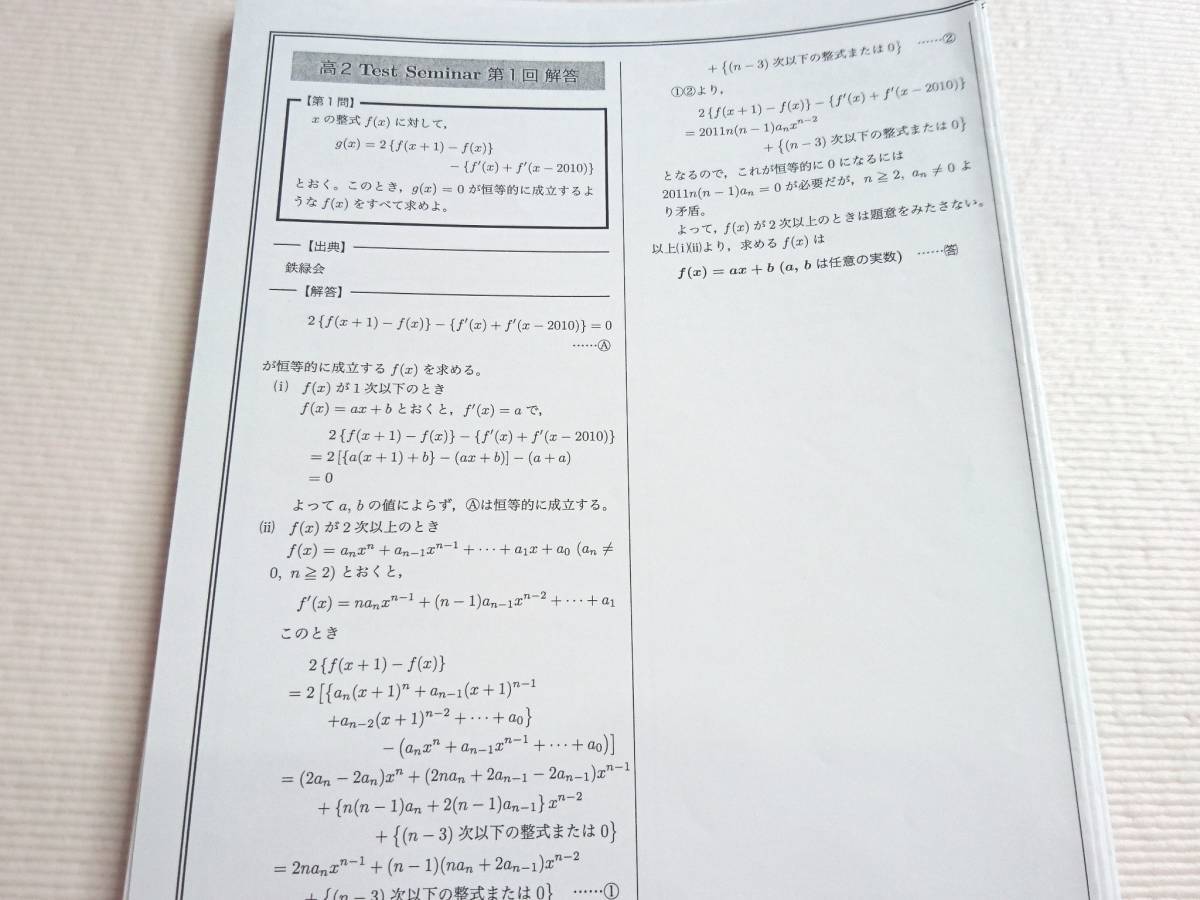 高2 Test Seminar 第1回 解答
【第1問】
x の整式 f(x) に対して,
g(x) = 2{f(x+1) − f(x)}
− {f′(x) + f′(x − 2010)}
とおく。このとき, g(x) = 0 が恒等的に成立するよ
うな f(x) をすべて求めよ。
【出典】
鉄緑会
【解答】
2{f(x+1) − f(x)} − {f′(x) + f′(x − 2010)} = 0
……Ⓐ
が恒等的に成立する f(x) を求める。
(i) f(x) が1次以下のとき
f(x) = ax + b とおくと, f′(x) = a で,
2{f(x+1) − f(x)} − {f′(x) + f′(x − 2010)}
= 2[{a(x+1) + b} − (ax + b)] − (a + a)
= 0
よって a, b の値によらず, Ⓐは恒等的に成立する。
(ii) f(x) が2次以上のとき
f(x) = aₙxⁿ + aₙ₋₁xⁿ⁻¹ + ⋯ + a₁x + a₀ (aₙ ≠
0, n ≧ 2) とおくと,
f′(x) = naₙxⁿ⁻¹ + (n − 1)aₙ₋₁xⁿ⁻² + ⋯ + a₁
このとき
2{f(x+1) − f(x)}
= 2[{aₙ(x+1)ⁿ + aₙ₋₁(x+1)ⁿ⁻¹
+aₙ₋₂(x+1)ⁿ⁻² + ⋯ + a₀}
− (aₙxⁿ + aₙ₋₁xⁿ⁻¹ + ⋯ + a₀)]
= (2aₙ − 2aₙ)xⁿ + (2naₙ + 2aₙ₋₁ − 2aₙ₋₁)xⁿ⁻¹
+ {n(n − 1)aₙ + 2(n − 1)aₙ₋₁}xⁿ⁻²
+ {(n − 3) 次以下の整式または 0}
= 2naₙxⁿ⁻¹ + (n − 1)(naₙ + 2aₙ₋₁)xⁿ⁻²
+ {(n − 3) 次以下の整式または 0} ……①
+ {(n − 3) 次以下の整式または 0} ……②
①②より,
2{f(x+1) − f(x)} − {f′(x) + f′(x − 2010)}
= 2011n(n − 1)aₙxⁿ⁻²
+ {(n − 3) 次以下の整式または 0}
となるので, これが恒等的に 0 になるには
2011n(n − 1)aₙ = 0 が必要だが, n ≧ 2, aₙ ≠ 0 よ
り矛盾。
よって, f(x) が2次以上のときは題意をみたさない。
以上(i)(ii)より, 求める f(x) は
f(x) = ax + b (a, b は任意の実数) ……㊎答